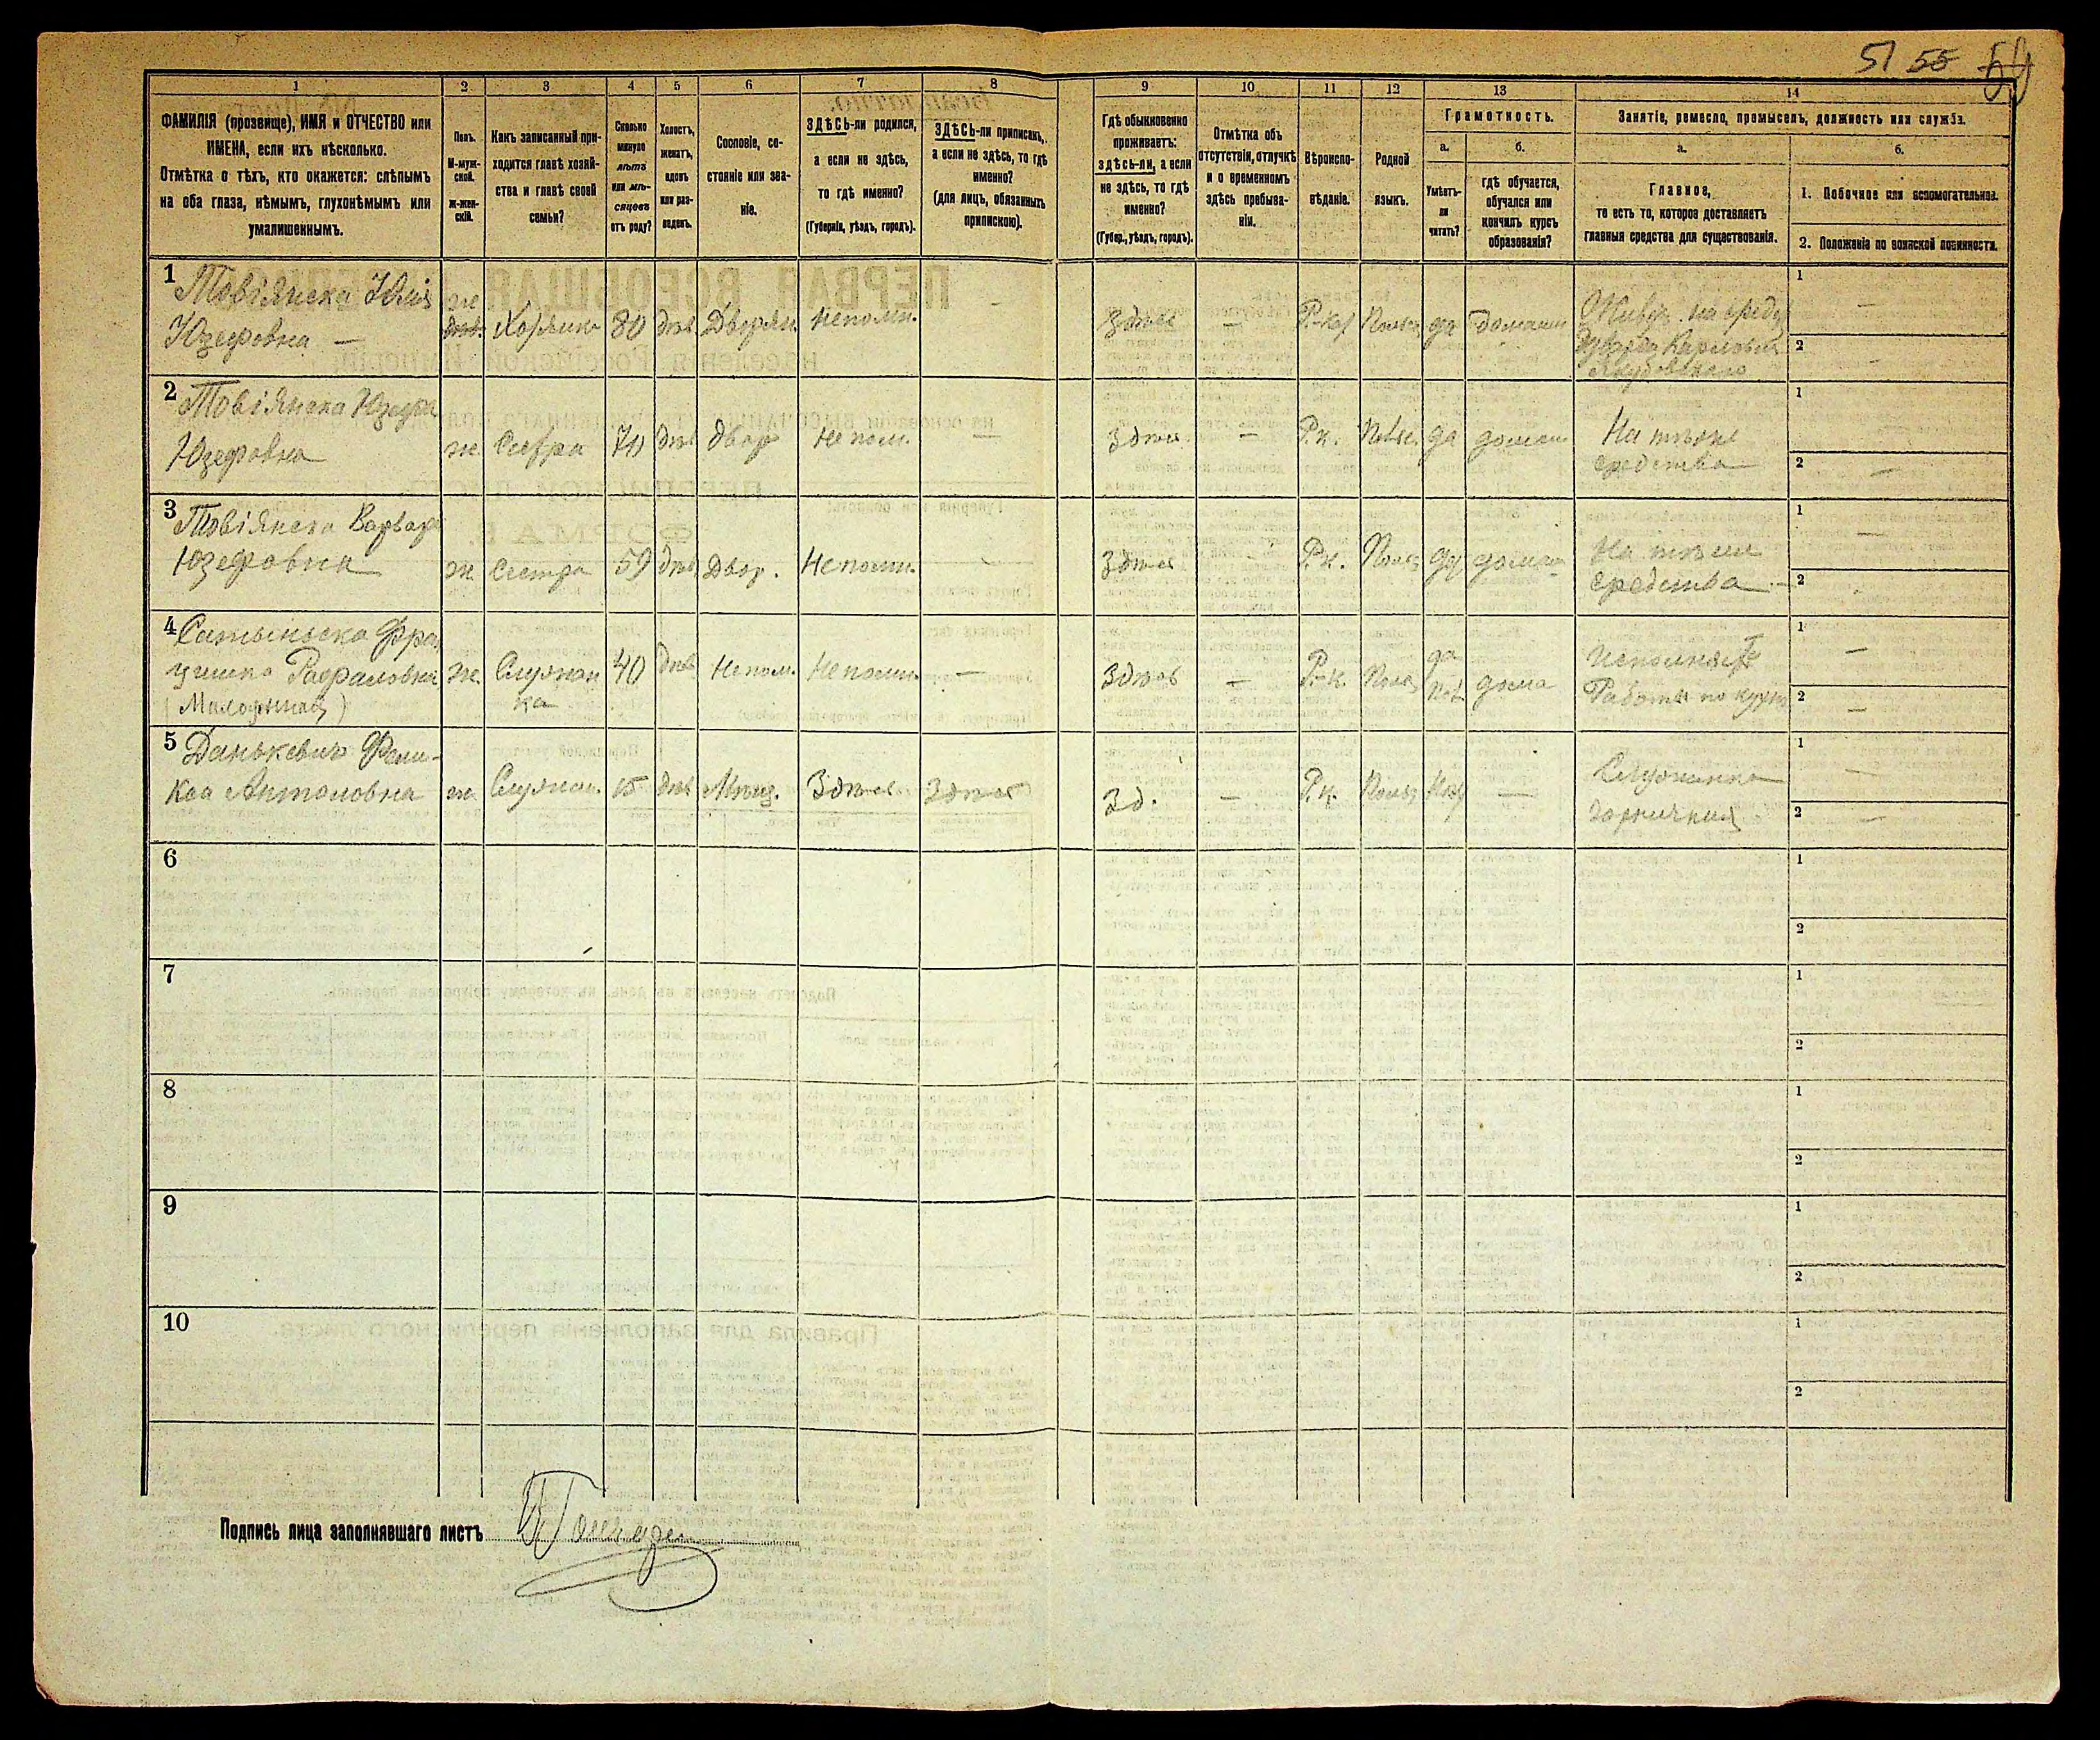 51 55 54
1 2 3 4 5 6 7 8 9 10 11 12 13 14
ФАМИЛІЯ (прозвище), ИМЯ и ОТЧЕСТВО или
ИМЕНА, если ихъ нѣсколько.
Отмѣтка о тѣхъ, кто окажется: слѣпымъ
на оба глаза, нѣмымъ, глухонѣмымъ или
умалишеннымъ.
Полъ.
М-муж-
ской.
Ж-жен-
скій.
Какъ записанный при-
ходится главѣ хозяй-
ства и главѣ своей
семьи?
Сколько
минуло
лѣтъ
или мѣ-
сяцевъ
отъ роду?
Холостъ,
женатъ,
вдовъ
или раз-
веденъ.
Сословіе, со-
стояніе или зва-
ніе.
ЗДѢСЬ-ли родился,
а если не здѣсь,
то гдѣ именно?
(Губернія, уѣздъ, городъ).
ЗДѢСЬ-ли приписанъ,
а если не здѣсь, то гдѣ
именно?
(для лицъ, обязанныхъ
припискою).
Гдѣ обыкновенно
проживаетъ:
здѣсь-ли, а если
не здѣсь, то гдѣ
именно?
(Губер., уѣздъ, городъ).
Отмѣтка объ
отсутствіи, отлучкѣ
и о временномъ
здѣсь пребыва-
ніи.
Вѣроиспо-
вѣданіе.
Родной
языкъ.
Грамотность.
а.
Умѣетъ-
ли
читать?
б.
гдѣ обучается,
обучался или
кончилъ курсъ
образованія?
Занятіе, ремесло, промыселъ, должность или служба.
а.
Главное,
то есть то, которое доставляетъ
главныя средства для существованія.
б.
1. Побочное или вспомогательное.
2. Положеніе по воинской повинности.
1 Товіянска Юлія
Юзефовна —
ж Хозяйка 80 дѣв Дворян. Непомн. — Здѣсь — Р.-кат Польск да домашн
Живутъ на средс
Карловича
1 —
2 —
2 Товіянска Юзефа
Юзефовна ж Сестра 70 дѣв двор Непом. — здѣсь — Р.к. Польс. да домаш
На тѣже
средства
1
2 —
3 Товіянска Варвара
Юзефовна ж Сестра 59 дѣв Двор. Непомн. — здѣсь — Р.к. Польс да домаш
На тѣже
средства —
1 —
2
4 Фран
цишка Рафаловна ж Служан
ка 40 дѣв Непом. Непомн. — Здѣсь — Р.-к. Польс да дома
Исполняетъ
Работы по кухн
1 —
2 —
5 Данькевичъ Фели-
кса Антоловна ж Служан. 15 дѣв Мѣщ. Здѣсь Здѣсь Зд. — Р.к. Польс —
Служанка
горничная
1 —
2 —
6 1
2
7 1
2
8 1
2
9 1
2
10 1
2
Подпись лица заполнявшаго листъ